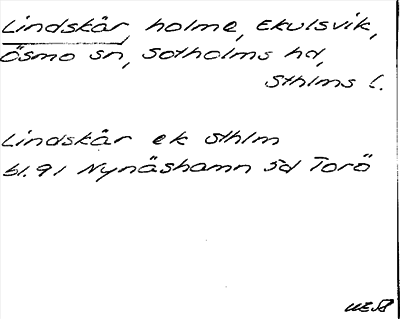 Lindskär, holme, Ekulsvik,
Ösmo sn, Sotholms hd,
Sthlms l.
Lindskär ek Sthlm
bl. 91 Nynäshamn Sd Torö